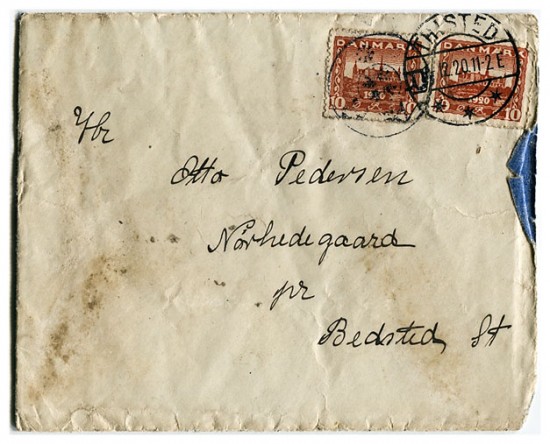 THISTED
DANMARK DANMARK
20.11-2 E
1920 1920
10 10 10
Hr
Otto Pedersen
Nørhedegaard
pr
Bedsted St